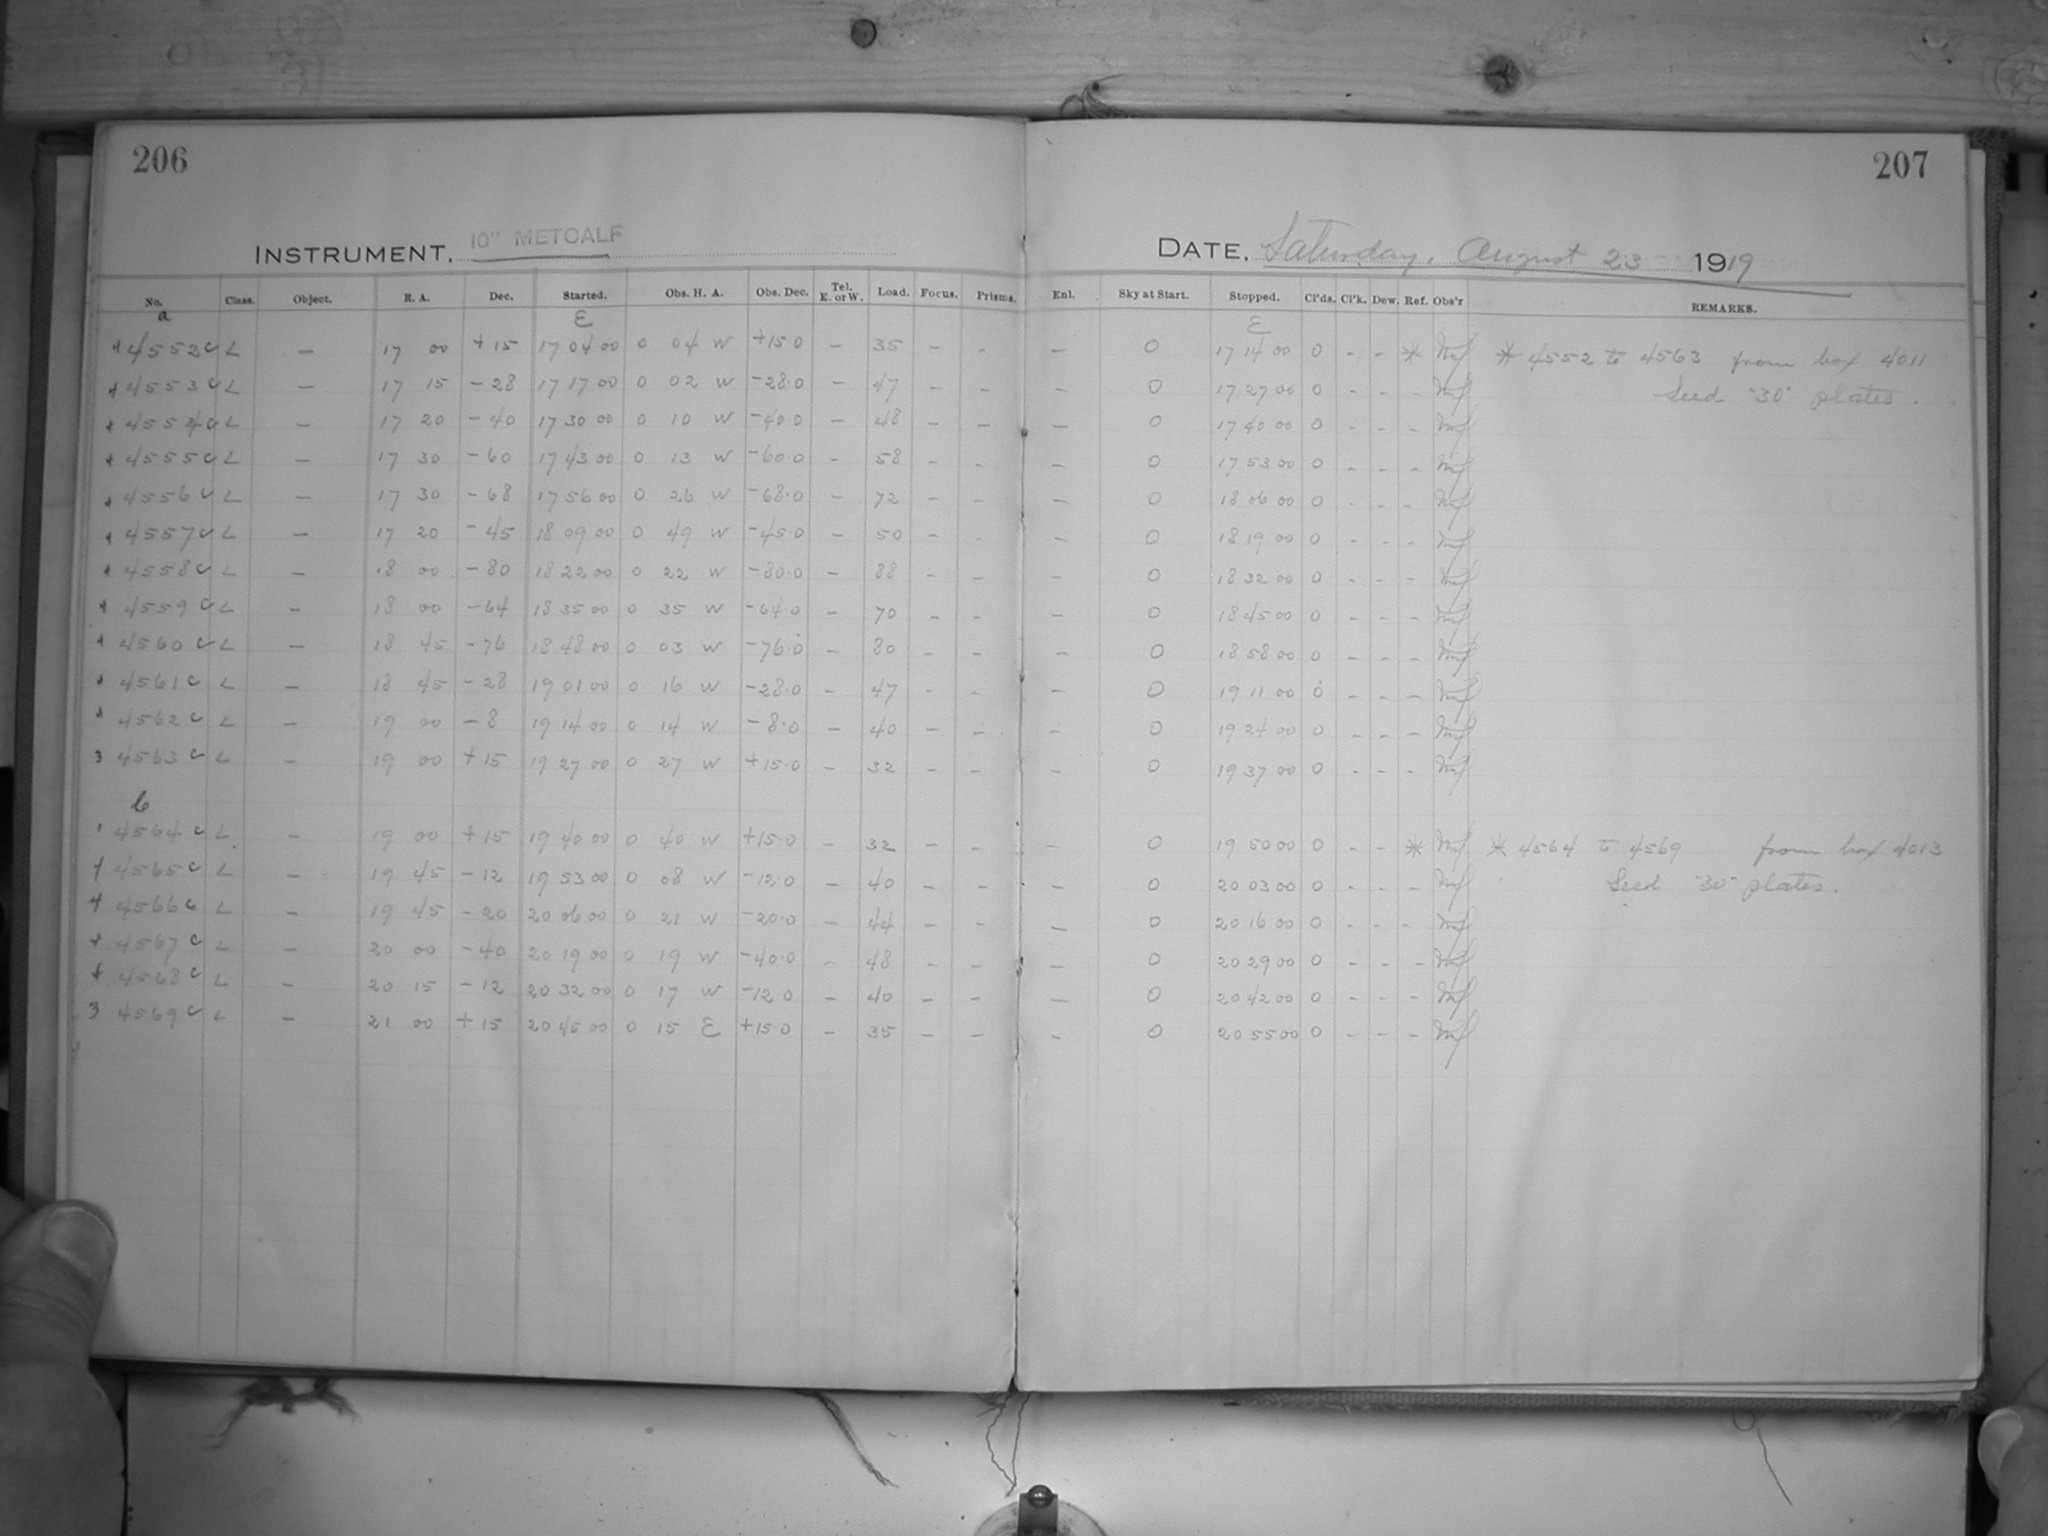 206
207
INSTRUMENT, 10" METCALF
DATE, Saturday, August 23 1919
No. Class. Object. R. A. Dec. Started. Obs. H. A. Obs. Dec. Tel. E. or W. Load. Focus. Prisms. Enl. Sky at Start. Stopped. Cl'ds. Cl'k. Dew. Ref. Obs'r REMARKS.
a E E
4552 C L — 17 00 +15 17 04 00 0 04 W +15.0 — 35 — — — 0 17 14 00 0 - - * * 4552 to 4563 from box 4011
4553 C L — 17 15 -28 17 17 00 0 02 W -28.0 — 47 — — — 0 17 27 00 0 - - - Seed "30" plates.
4554 C L — 17 20 -40 17 30 00 0 10 W -40.0 — 48 — — — 0 17 40 00 0 - - -
4555 C L — 17 30 -60 17 43 00 0 13 W -60.0 — 58 — — — 0 17 53 00 0 - - -
4556 C L — 17 30 -68 17 56 00 0 26 W -68.0 — 72 — — — 0 18 06 00 0 - - -
4557 C L — 17 20 -45 18 09 00 0 49 W -45.0 — 50 — — — 0 18 19 00 0 - - -
4558 C L — 18 00 -80 18 22 00 0 22 W -80.0 — 88 — — — 0 18 32 00 0 - - -
4559 C L — 18 00 -64 18 35 00 0 35 W -64.0 — 70 — — — 0 18 45 00 0 - - -
4560 C L — 18 45 -76 18 48 00 0 03 W -76.0 — 80 — — — 0 18 58 00 0 - - -
4561 C L — 18 45 -28 19 01 00 0 16 W -28.0 — 47 — — — 0 19 11 00 0 - - -
4562 C L — 19 00 -8 19 14 00 0 14 W -8.0 — 40 — — — 0 19 24 00 0 - - -
3 4563 C L — 19 00 +15 19 27 00 0 27 W +15.0 — 32 — — — 0 19 37 00 0 - - -
b
4564 C L — 19 00 +15 19 40 00 0 40 W +15.0 — 32 — — — 0 19 50 00 0 - - * * 4564 to 4569 from box 4013
4565 C L — 19 45 -12 19 53 00 0 08 W -12.0 — 40 — — — 0 20 03 00 0 - - - Seed "30" plates.
4566 C L — 19 45 -20 20 06 00 0 21 W -20.0 — 44 — — — 0 20 16 00 0 - - -
4567 C L — 20 00 -40 20 19 00 0 19 W -40.0 — 48 — — — 0 20 29 00 0 - - -
4568 C L — 20 15 -12 20 32 00 0 17 W -12.0 — 40 — — — 0 20 42 00 0 - - -
3 4569 C L — 21 00 +15 20 45 00 0 15 E +15.0 — 35 — — — 0 20 55 00 0 - - -